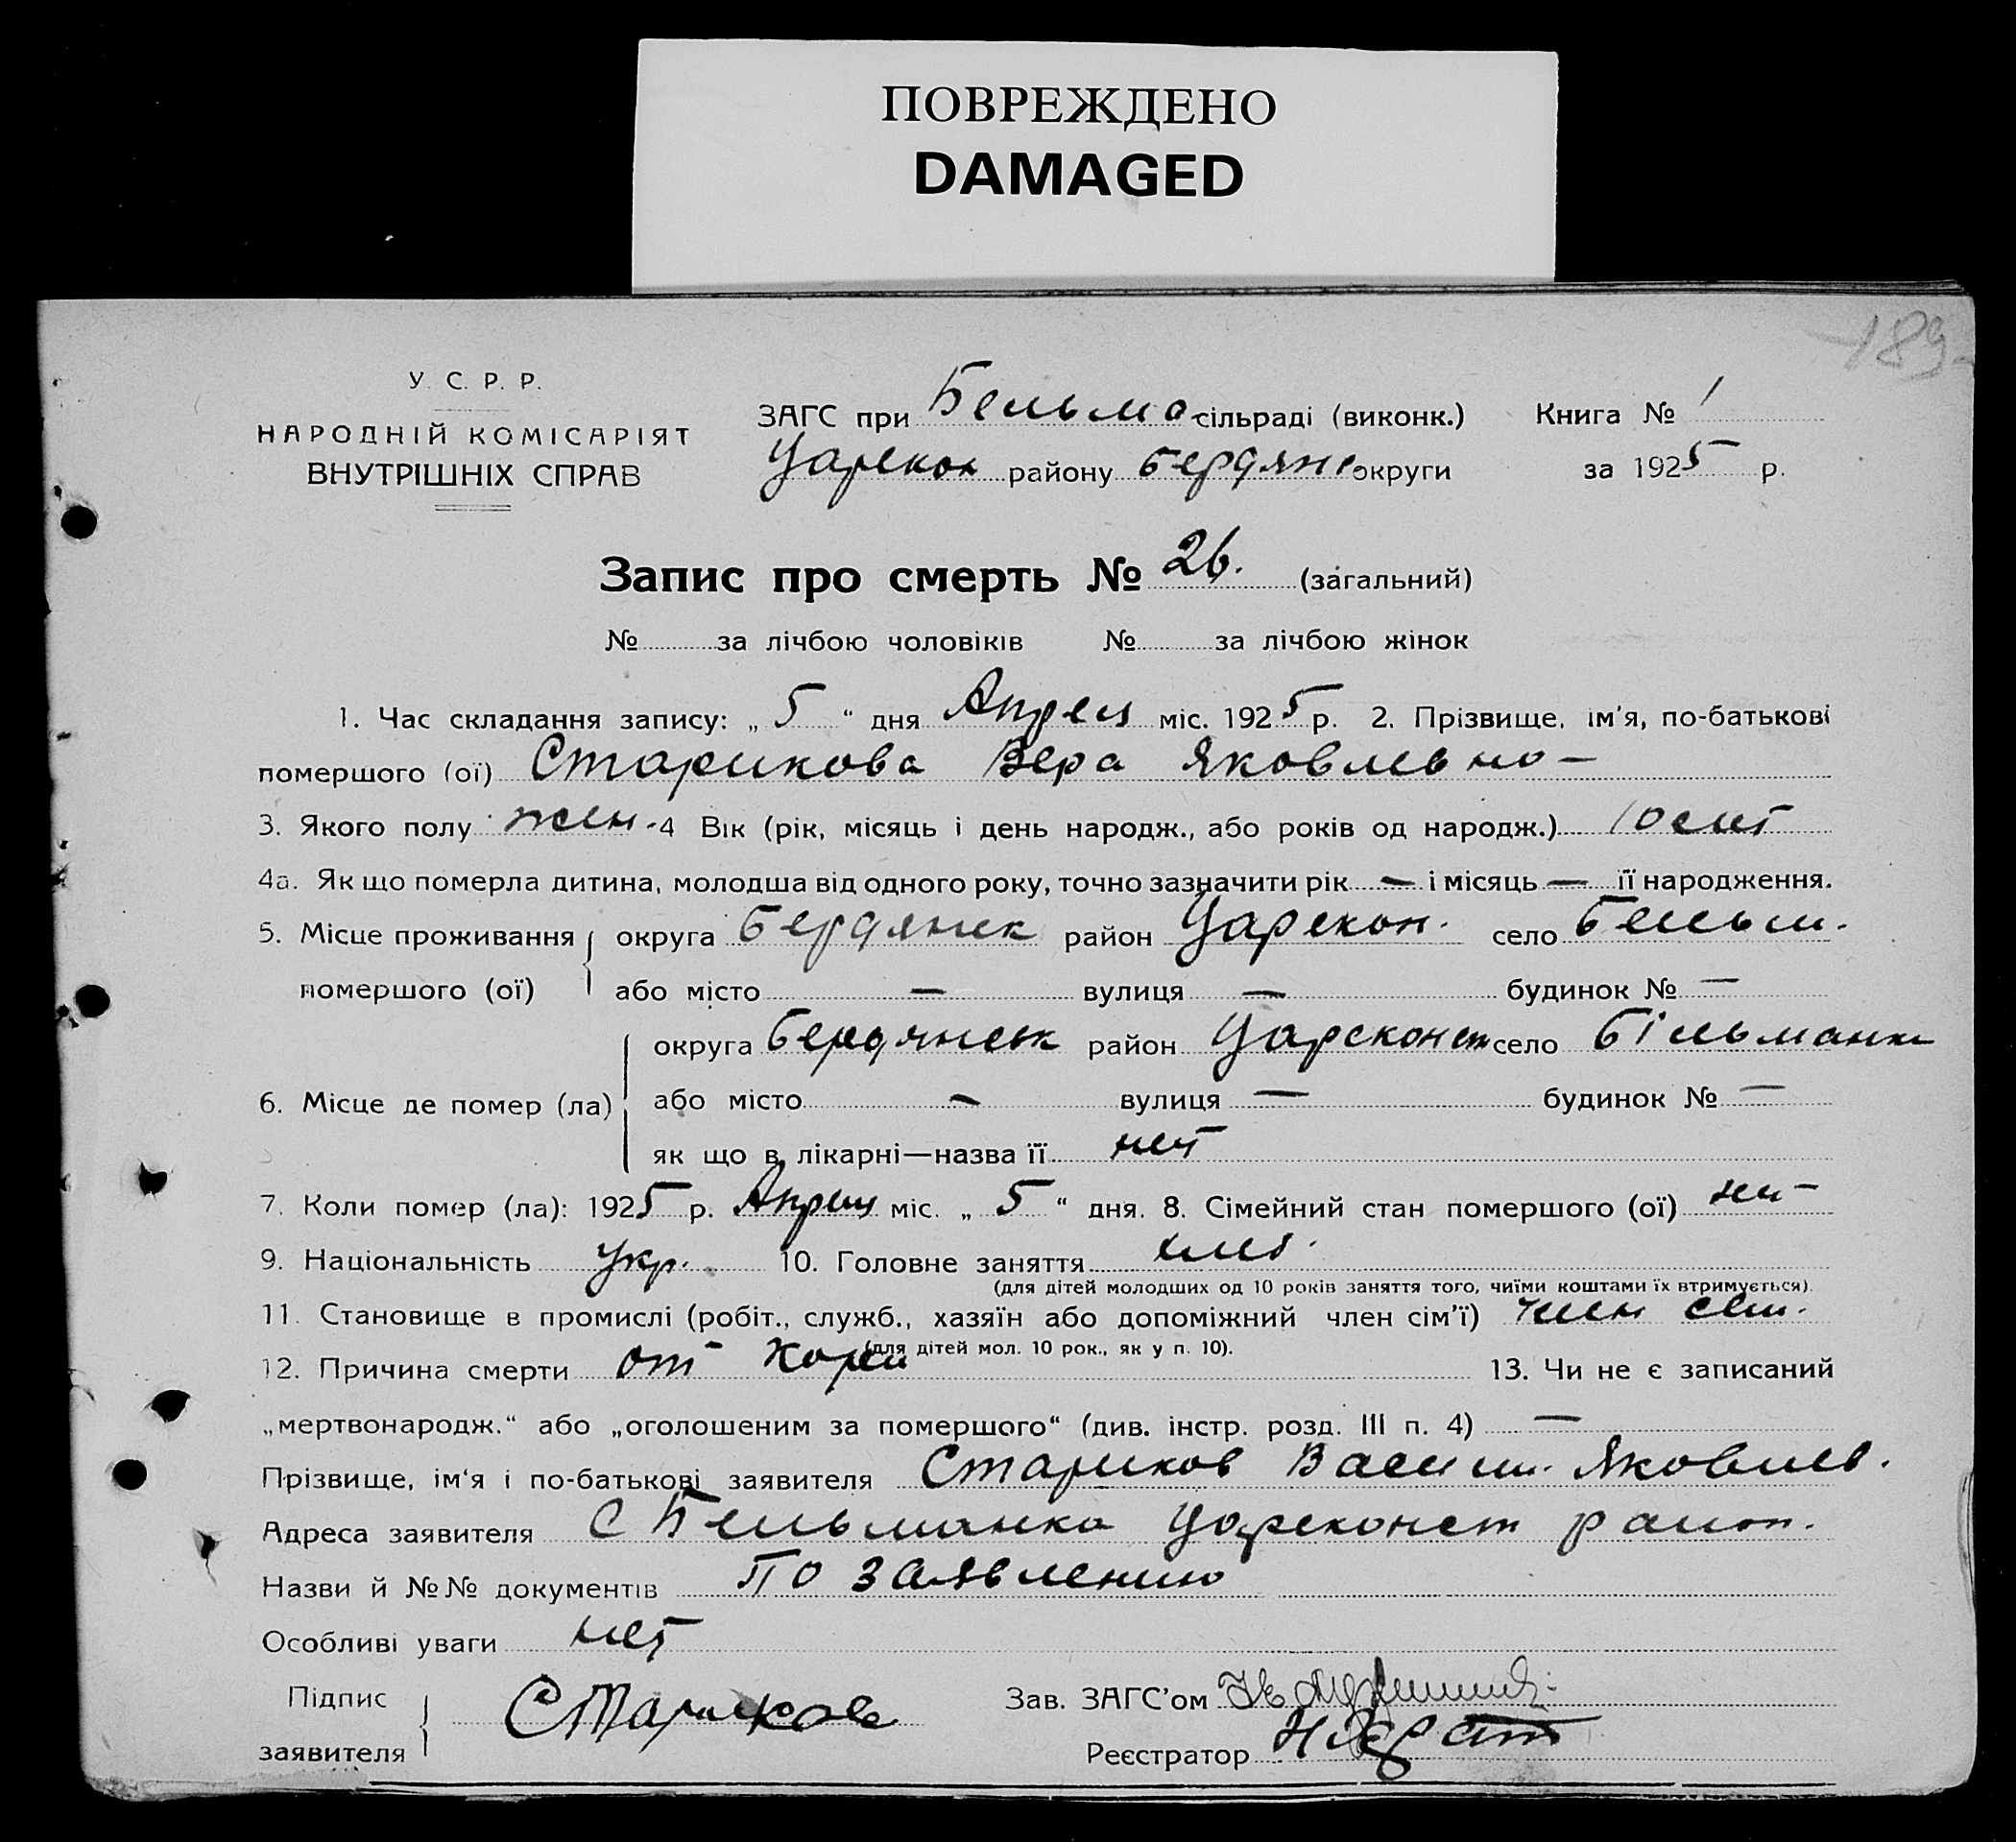 ПОВРЕЖДЕНО
DAMAGED
189
У. С. Р. Р.
НАРОДНІЙ КОМІСАРІЯТ
ВНУТРІШНІХ СПРАВ
ЗАГС при Бельма сільраді (виконк.) Книга № 1
Царекон району Бердянс округи за 1925 р.
Запис про смерть № 26. (загальний)
№ за лічбою чоловіків № за лічбою жінок
1. Час складання запису: „ 5 “ дня Апрел міс. 1925 р. 2. Прізвище, ім'я, по-батькові
помершого (ої) Старикова Вера Яковлевно —
3. Якого полу жен. 4 Вік (рік, місяць і день народж., або років од народж.) 10 лет
4а. Як що померла дитина, молодша від одного року, точно зазначити рік — і місяць — її народження.
5. Місце проживання округа Бердянск район Царекон. село Бельм.
помершого (ої) або місто — вулиця — будинок № —
округа Бердянськ район Царсконст село Більманк
6. Місце де помер (ла) або місто — вулиця — будинок № —
як що в лікарні—назва її нет
7. Коли помер (ла): 1925 р. Апрел міс. „ 5 “ дня. 8. Сімейний стан помершого (ої)
9. Національність Укр. 10. Головне заняття
(для дітей молодших од 10 років заняття того, чиїми коштами їх втримується).
11. Становище в промислі (робіт., служб., хазяїн або допоміжний член сім'ї) член сем.
(для дітей мол. 10 рок., як у п. 10).
12. Причина смерти от Кори 13. Чи не є записаний
„мертвонародж.“ або „оголошеним за помершого“ (див. інстр. розд. III п. 4) —
Прізвище, ім'я і по-батькові заявителя Стариков Васили. Яковлев.
Адреса заявителя С Бельманка Царсконст район.
Назви й №№ документів По заявлению
Особливі уваги нет
Підпис
заявителя Стариков
Зав. ЗАГС'ом
Реєстратор